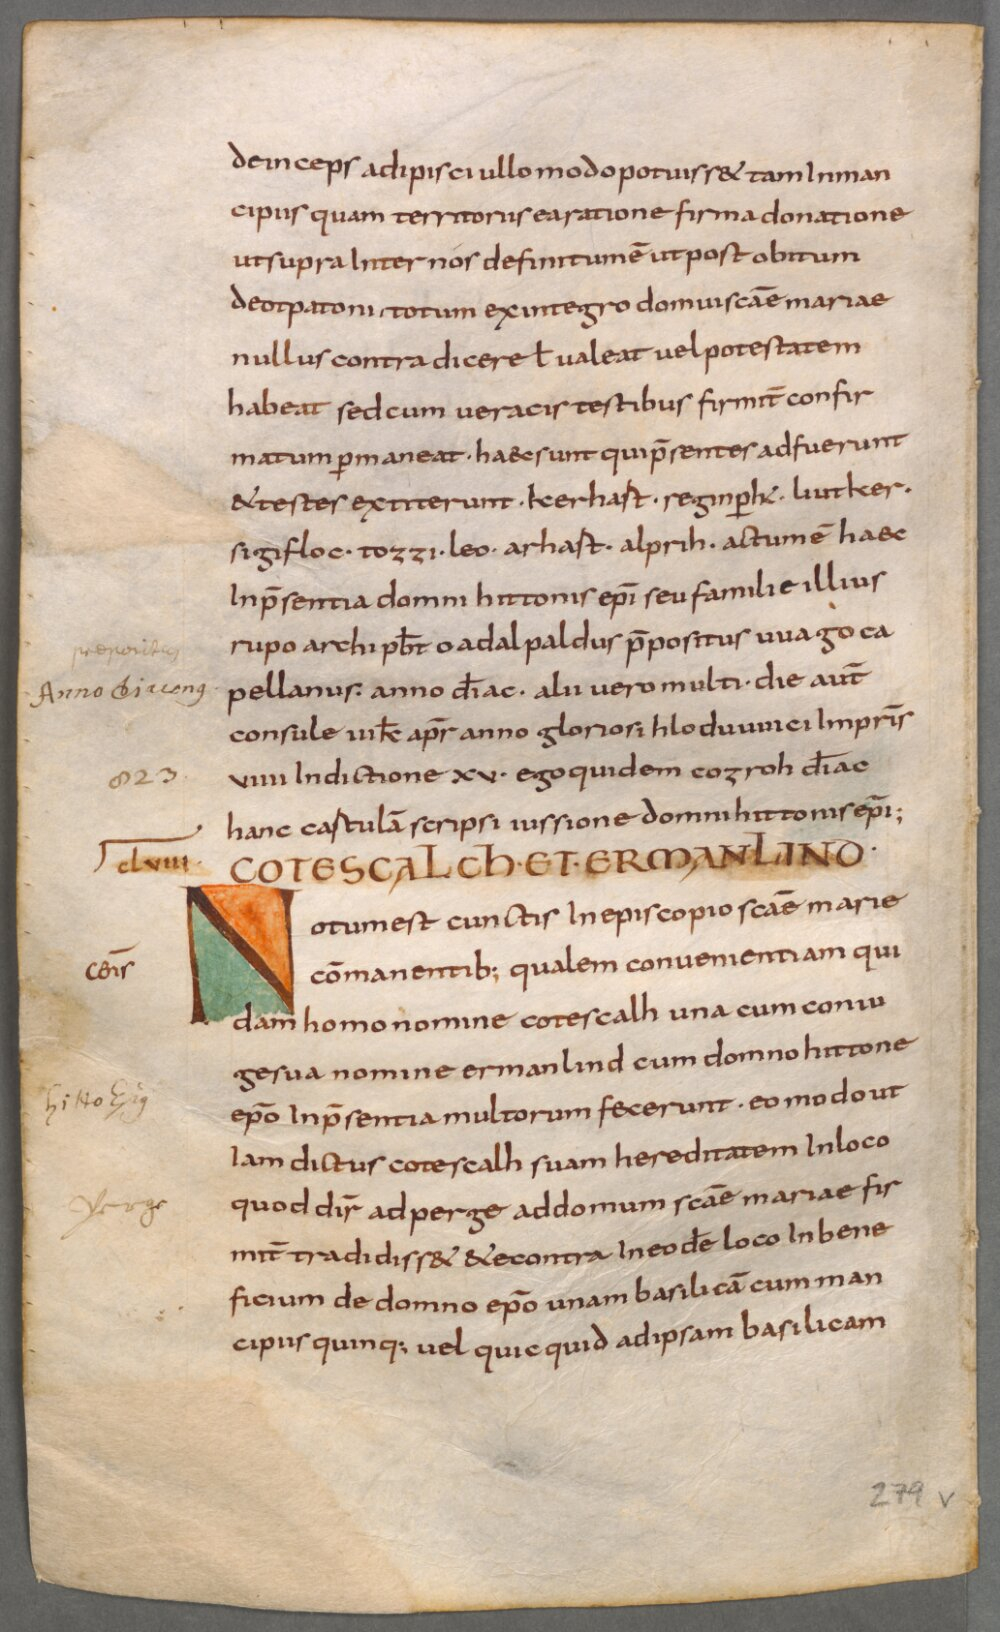 deinceps adipisci ullo modo potuiss& tam In man
cipiis quam territoriis ea ratione firma donatione
ut supra Inter nós definitum ē ut post obitum
deotpatoni, totum ex integro domui scāe mariae
nullus contradicere ł valeat vel potestatem
habeat sed cum veracis testibus firmit̄ confir
matum p̄maneat · haec sunt qui p̄sentes adfuerunt
& testes extiterunt · kerhast · reginp̄ht · liutker ·
sigifloc · tozzi · leo · arhast · alprih · actum ē haec
In p̄sentia domni hittonis ep̄i seu familie illius
rupo archi pb̄t oadalpaldus p̄positus uuago ca
pellanus: anno d̄iac · alii vero multi · die aut̄
consule iiik̄ apr̄ anno gloriosi hloduuuici Impr̄is
viiii Indictione xv · ego quidem cozroh d̄iac
hanc castulā scripsi iussione domni hittonis ep̄i;
prepositus
Anno Diacong
823
clviii ·
COTESCALCH · ET · ERMANLIND ·
Notum est cunctis In episcopio scāe marie
cōmanentib; qualem convenientiam qui
cēīs
dam homo nomine cotescalh una cum coniu
ge sua nomine ermanlind cum domno hittone
ep̄o In p̄sentia multorum fecerunt · eo modo ut
hitto Epg
Iam dictus cotescalh suam hereditatem In loco
quod dir̄ ad perge ad domum scāe mariae fir
Perge
mit̄ tradidiss& & econtra In eodē loco In bene
ficium de domno ep̄o unam basilicā cum man
cipiis quinq; vel quicquid ad ipsam basilicam
279 v